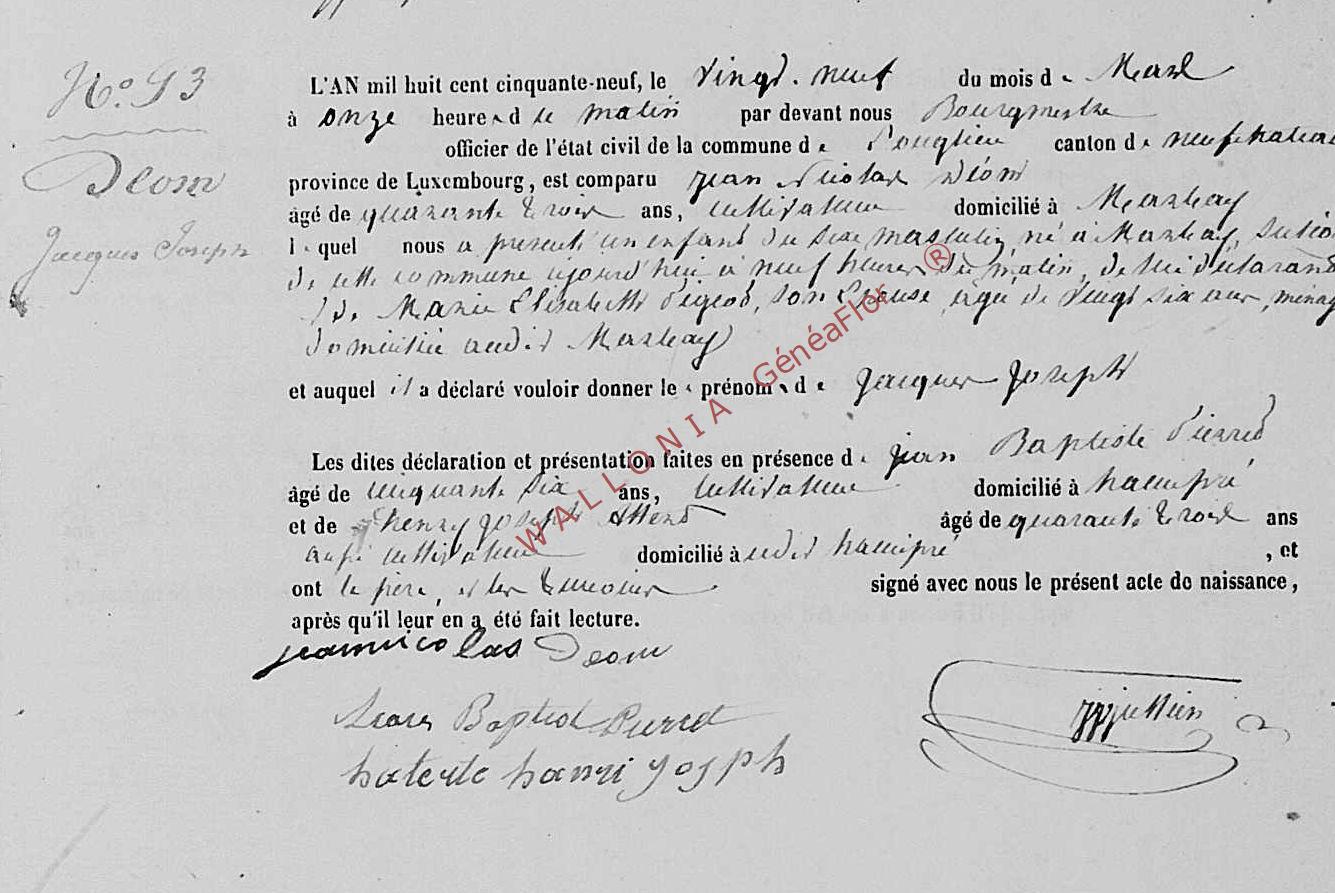 N.° 93
Deom
Jacques Joseph
L'AN mil huit cent cinquante-neuf, le vingt-neuf du mois de Mars
à onze heures du matin par devant nous Bourgmestre
officier de l'état civil de la commune de canton de neufchateau
province de Luxembourg, est comparu jean Nicolas Déom
âgé de quarante trois ans, cultivateur domicilié à Marbay
lequel nous a présenté un enfant du sexe masculin né à Marbay, section
de cette commune aujourd'hui à neuf heures du matin, de lui déclarant
de Marie Elisabeth Pigeot, son Epouse, agée de vingt six ans, ménag
domiciliée audit Marbay
et auquel il a déclaré vouloir donner les prénoms de jacques joseph
Les dites déclaration et présentation faites en présence de jean Baptiste Pierret
âgé de cinquante six ans, cultivateur domicilié à hamipré
et de henry joseph âgé de quarante trois ans
aussi cultivateur domicilié à udit hamipré , et
ont le père, et les témoins signé avec nous le présent acte de naissance,
après qu'il leur en a été fait lecture.
jeannicolas Deom
Jean Baptist Pierret
hanri Joseph
WALLONIA GénéaFlor ®